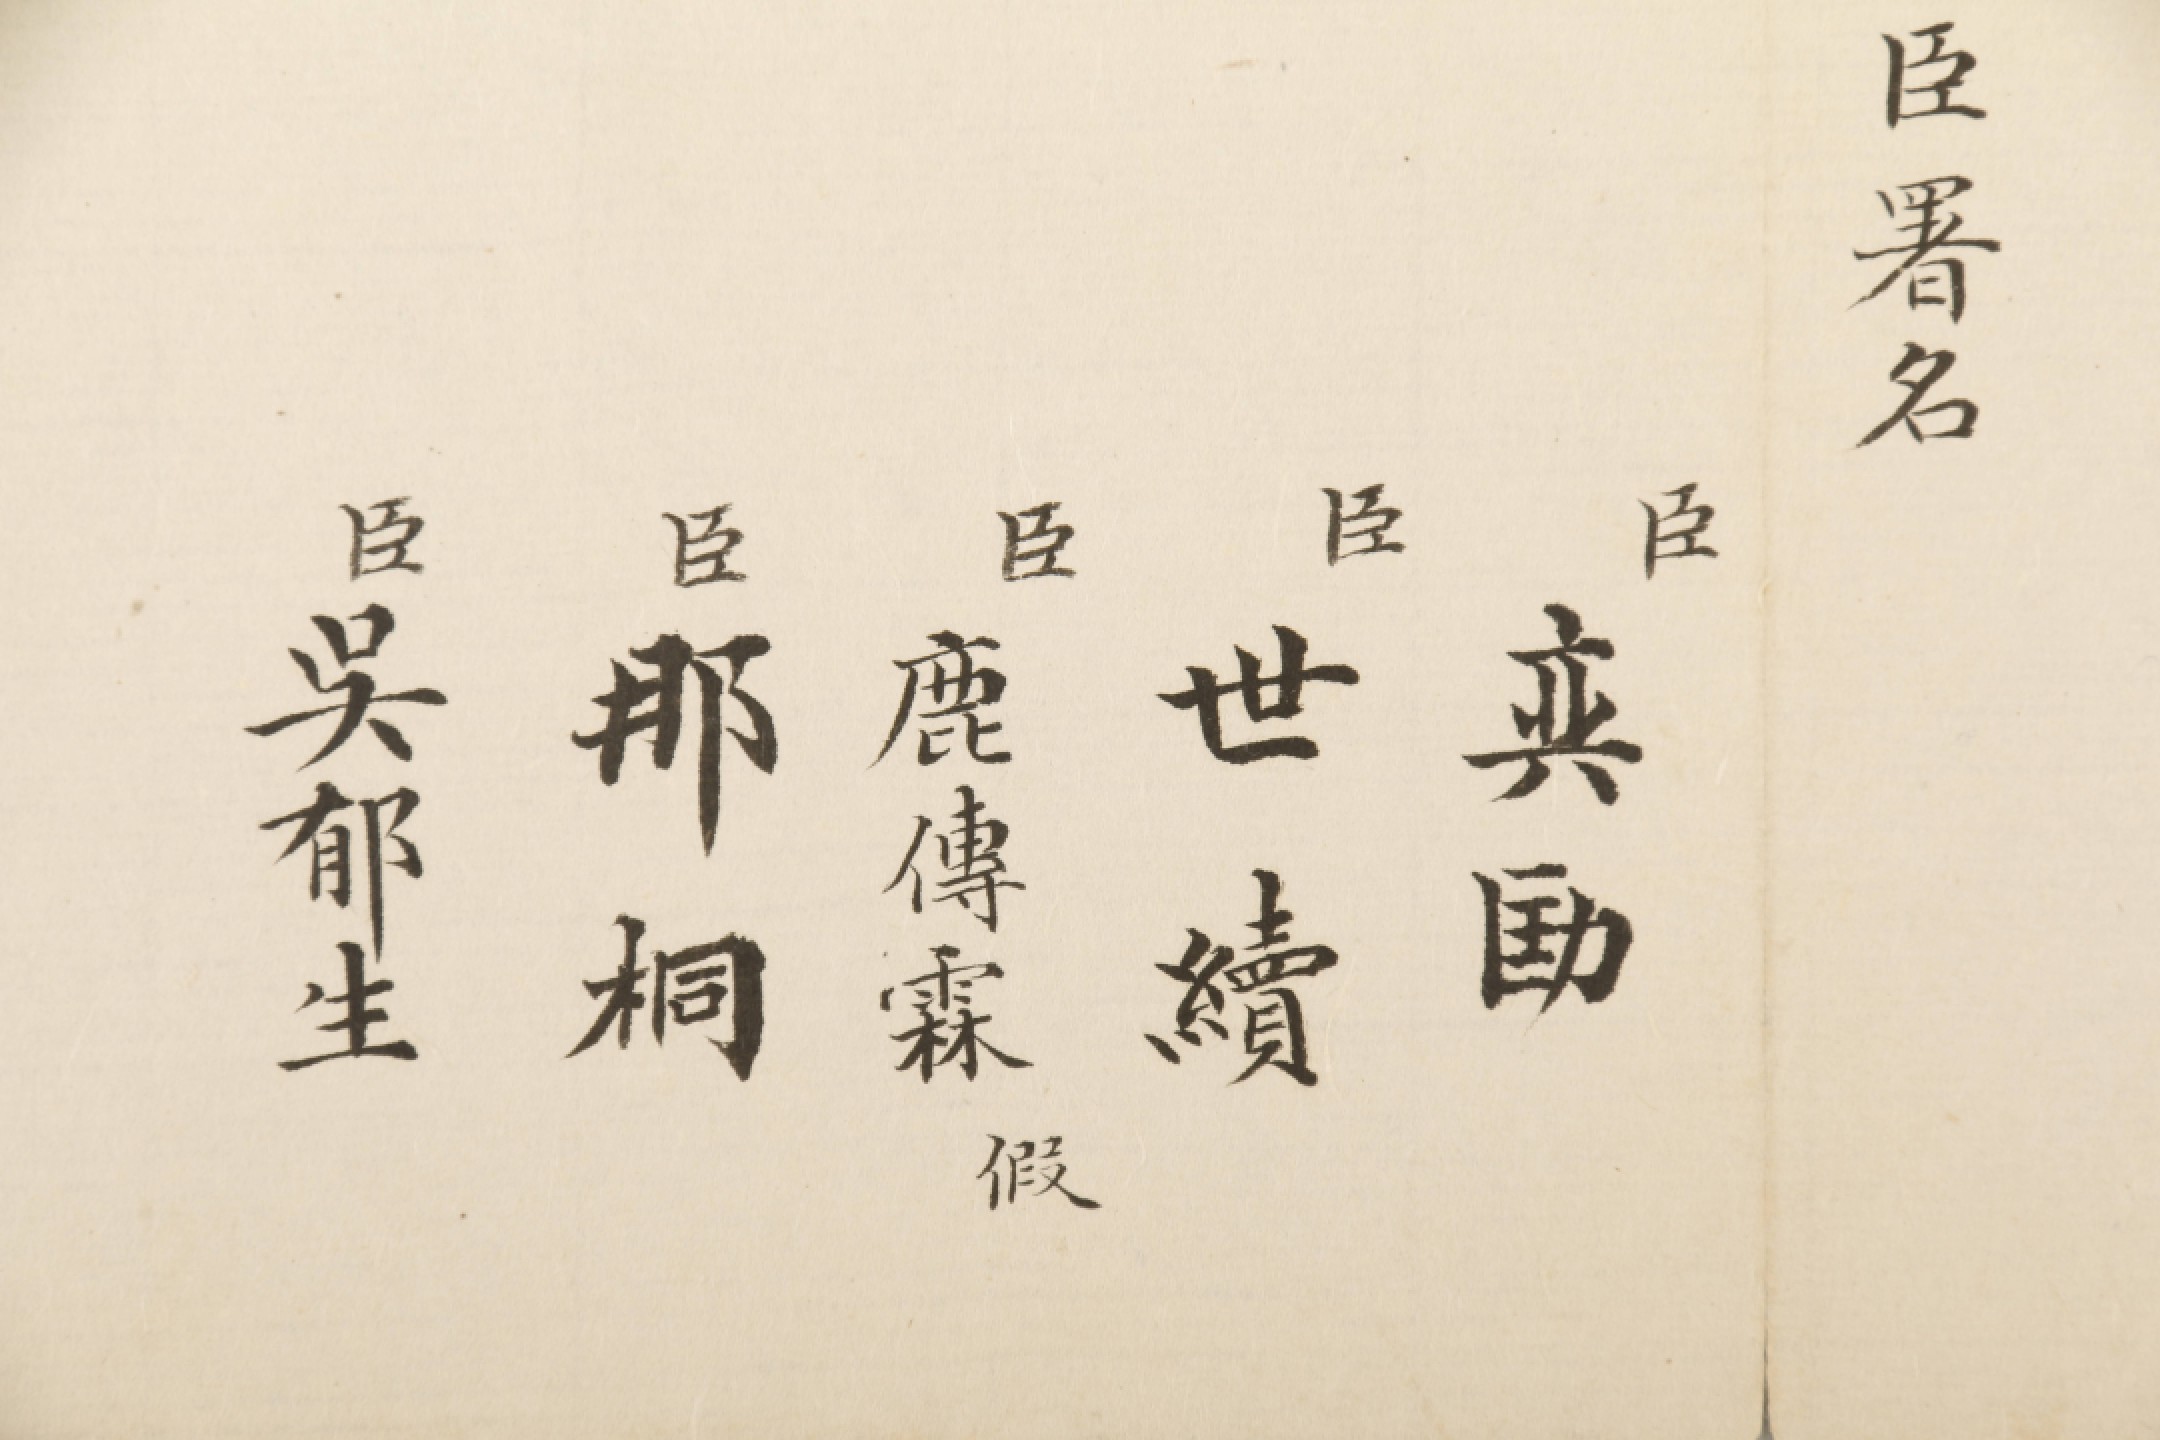 臣署名
臣奕劻
臣世續
臣鹿傳霖假
臣那桐
臣吳郁生